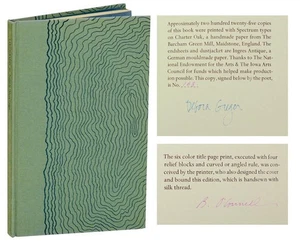 Approximately two hundred twenty-five copies
of this book were printed with Spectrum types
on Charter Oak, a handmade paper from The
Barcham Green Mill, Maidstone, England. The
endsheets and dustjacket are Ingres Antique, a
German mouldmade paper. Thanks to The Na-
tional Endowment for the Arts & The Iowa Arts
Council for funds which helped make produc-
tion possible. This copy, signed below by the poet,
is No.
The six color title page print, executed with four
relief blocks and curved or angled rule, was con-
ceived by the printer, who also designed the cover
and bound this edition, which is handsewn with
silk thread.